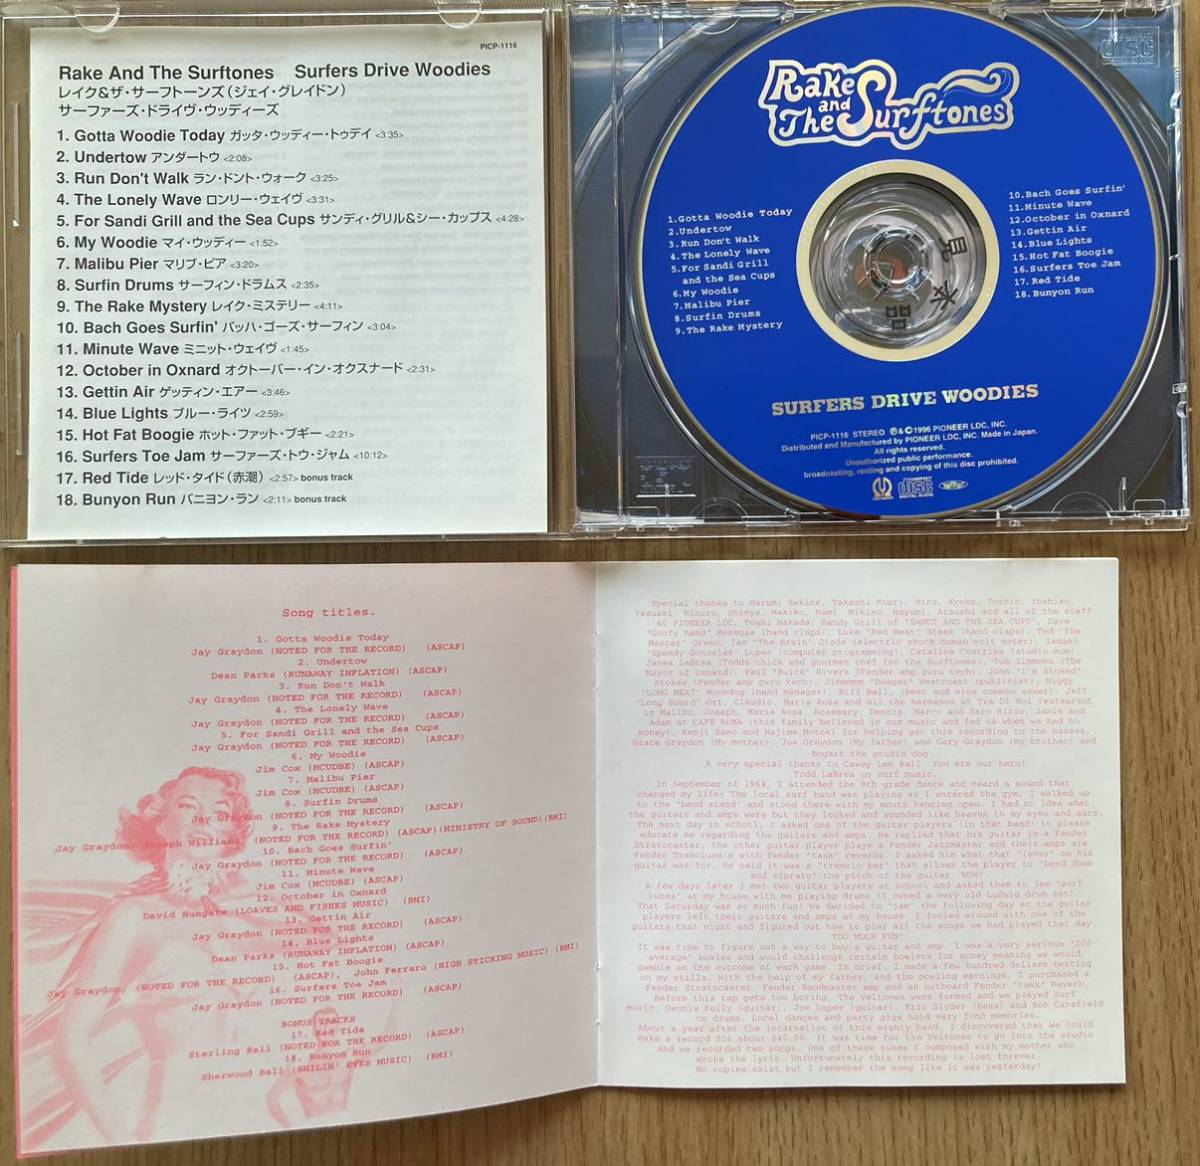 PICP-1116
Rake And The Surftones Surfers Drive Woodies
レイク&ザ・サーフトーンズ(ジェイ・グレイドン)
サーファーズ・ドライヴ・ウッディーズ
1. Gotta Woodie Today ガッタ・ウッディー・トゥデイ <3:35>
2. Undertow アンダートウ <2:08>
3. Run Don't Walk ラン・ドント・ウォーク <3:25>
4. The Lonely Wave ロンリー・ウェイヴ <3:31>
5. For Sandi Grill and the Sea Cups サンディ・グリル&シー・カップス <4:28>
6. My Woodie マイ・ウッディー <1:52>
7. Malibu Pier マリブ・ピア <3:20>
8. Surfin Drums サーフィン・ドラムス <2:35>
9. The Rake Mystery レイク・ミステリー <4:11>
10. Bach Goes Surfin' バッハ・ゴーズ・サーフィン <3:04>
11. Minute Wave ミニット・ウェイヴ <1:45>
12. October in Oxnard オクトーバー・イン・オクスナード <2:31>
13. Gettin Air ゲッティン・エアー <3:46>
14. Blue Lights ブルー・ライツ <2:59>
15. Hot Fat Boogie ホット・ファット・ブギー <2:21>
16. Surfers Toe Jam サーファーズ・トウ・ジャム <10:12>
17. Red Tide レッド・タイド(赤潮) <2:57> bonus track
18. Bunyon Run バニヨン・ラン <2:11> bonus track
Rake
and
The Surftones
1.Gotta Woodie Today
2.Undertow
3.Run Don't Walk
4.The Lonely Wave
5.For Sandi Grill
and the Sea Cups
6.My Woodie
7.Malibu Pier
8.Surfin Drums
9.The Rake Mystery
10.Bach Goes Surfin'
11.Minute Wave
12.October in Oxnard
13.Gettin Air
14.Blue Lights
15.Hot Fat Boogie
16.Surfers Toe Jam
17.Red Tide
18.Bunyon Run
見
本
品
SURFERS DRIVE WOODIES
PICP-1116 STEREO ℗&©1996 PIONEER LDC, INC.
Distributed and Manufactured by PIONEER LDC, INC. Made in Japan.
All rights reserved.
Unauthorized public performance,
broadcasting, renting and copying of this disc prohibited.
COMPACT
disc
DIGITAL AUDIO
Song titles.
1. Gotta Woodie Today
Jay Graydon (NOTED FOR THE RECORD) (ASCAP)
2. Undertow
Dean Parks (RUNAWAY INFLATION) (ASCAP)
3. Run Don't Walk
Jay Graydon (NOTED FOR THE RECORD) (ASCAP)
4. The Lonely Wave
Jay Graydon (NOTED FOR THE RECORD) (ASCAP)
5. For Sandi Grill and the Sea Cups
Jay Graydon (NOTED FOR THE RECORD) (ASCAP)
6. My Woodie
Jim Cox (MCUDBE) (ASCAP)
7. Malibu Pier
Jim Cox (MCUDBE) (ASCAP)
8. Surfin Drums
Jay Graydon (NOTED FOR THE RECORD) (ASCAP)
9. The Rake Mystery
Jay Graydon, Joseph Williams (NOTED FOR THE RECORD) (ASCAP)(MINISTRY OF SOUND)(BMI)
10. Bach Goes Surfin'
Jay Graydon (NOTED FOR THE RECORD) (ASCAP)
11. Minute Wave
Jim Cox (MCUDBE) (ASCAP)
12. October in Oxnard
David Hungate (LOAVES AND FISHES MUSIC) (BMI)
13. Gettin Air
Jay Graydon (NOTED FOR THE RECORD) (ASCAP)
14. Blue Lights
Dean Parks (RUNAWAY INFLATION) (ASCAP)
15. Hot Fat Boogie
Jay Graydon, (NOTED FOR THE RECORD) (ASCAP), John Ferraro (HIGH STICKING MUSIC) (BMI)
16. Surfers Toe Jam
Jay Graydon (NOTED FOR THE RECORD) (ASCAP)
BONUS TRACKS
17. Red Tide
Sterling Ball (NOTED FOR THE RECORD) (ASCAP)
18. Bunyon Run
Sherwood Ball (SMILIN' EYES MUSIC) (BMI)
Special thanks to Harumi Sekine, Takashi Mouri, Hiro, Kyoko, Toshio, Yoshiko,
Yazuski, Minoru, Shinya, Makiko, Mami, Mikiko, Mayumi, Atsushi and all of the staff
at PIONEER LDC, Toshi Nakada, Sandy Grill of "SANDI AND THE SEA CUPS", Dave
"Goofy hand" Hermosa (hand claps), Luke "Red Meat" Steak (hand claps), Ted "The
Master" Green, Ian "The Brain" Diode (electric shock human volt meter), Ismael
"Speedy Gonzales" Lopes (computer programming), Catalina Contrina (studio mom),
James LaBrea (Todds chick and gourmet chef for the Surftones), Tom Timmons (The
Mayor of Oxnard), Paul "Buick" Rivera (Fender amp guru tech), John "I'm Stoked"
Stokes (Fender amp guru tech), Jimmmmm "Dawgas" Westcoast (publicist), Miggy
"LONG MEAT" Moondog (band manager), Biff Ball, (beer and wine common sewer), Jeff
"Long Board" Ort, Claudio, Maria Rosa and all the hermanos at Tra Di Noi restaurant
in Malibu, Joseph, Maria Rosa, Rosemary, Dennis, Marco and Saro Rizzo, Jamie and
Adam at CAFE ROMA (this family believed in our music and fed us when we had no
money), Kenji Sano and Hajime Motoki for helping get this recording to the masses,
Grace Graydon (My mother), Joe Graydon (My father) and Gary Graydon (my brother) and
Bogart the studio dog.
A very special thanks to Casey Lee Ball. You are our hero!
Todd LaBrea on surf music.
In September of 1964, I attended the 9th grade dance and heard a sound that
changed my life! The local surf band was playing as I entered the gym. I walked up
to the "band stand" and stood there with my mouth hanging open. I had no idea what
the guitars and amps were but they looked and sounded like heaven to my eyes and ears.
The next day in school, I asked one of the guitar players (in that band) to please
educate me regarding the guitars and amps. He replied that his guitar is a Fender
Stratocaster, the other guitar player plays a Fender Jazzmaster and their amps are
Fender Tremoluxe's with Fender "tank" reverbs. I asked him what that "lever" on his
guitar was for. He said it was a "tremolo bar" that allows the player to "bend down
and vibrato" the pitch of the guitar. WOW!
A few days later I met two guitar players at school and asked them to jam "surf
tunes" at my house with me playing drums (I owned a very old Ludwig drum set).
That Saturday was so much fun! We decided to "jam" the following day so the guitar
players left their guitars and amps at my house. I fooled around with one of the
guitars that night and figured out how to play all the songs we had played that day.
TOO MUCH FUN!
It was time to figure out a way to buy a guitar and amp. I was a very serious "200
average" bowler and would challenge certain bowlers for money meaning we would
gamble on the outcome of each game. In brief, I made a few hundred dollars betting
on my skills. With the help of my father, and the bowling earnings, I purchased a
Fender Stratocaster, Fender Bandmaster amp and an outboard Fender "tank" Reverb.
Before this rap gets too boring, The Veltones were formed and we played surf
music. Dennis Kelly (guitar), Joe Lopes (guitar), Eric Slyder (bass) and Bob Carafield
on drums. Local dances and party gigs hold very fond memories.
About a year after the incarnation of this mighty band, I discovered that we could
make a record for about $40.00. It was time for the Veltones to go into the studio
and we recorded two songs. One of these tunes I composed with my mother who
wrote the lyric. Unfortunately this recording is lost forever.
No copies exist but I remember the song like it was yesterday!